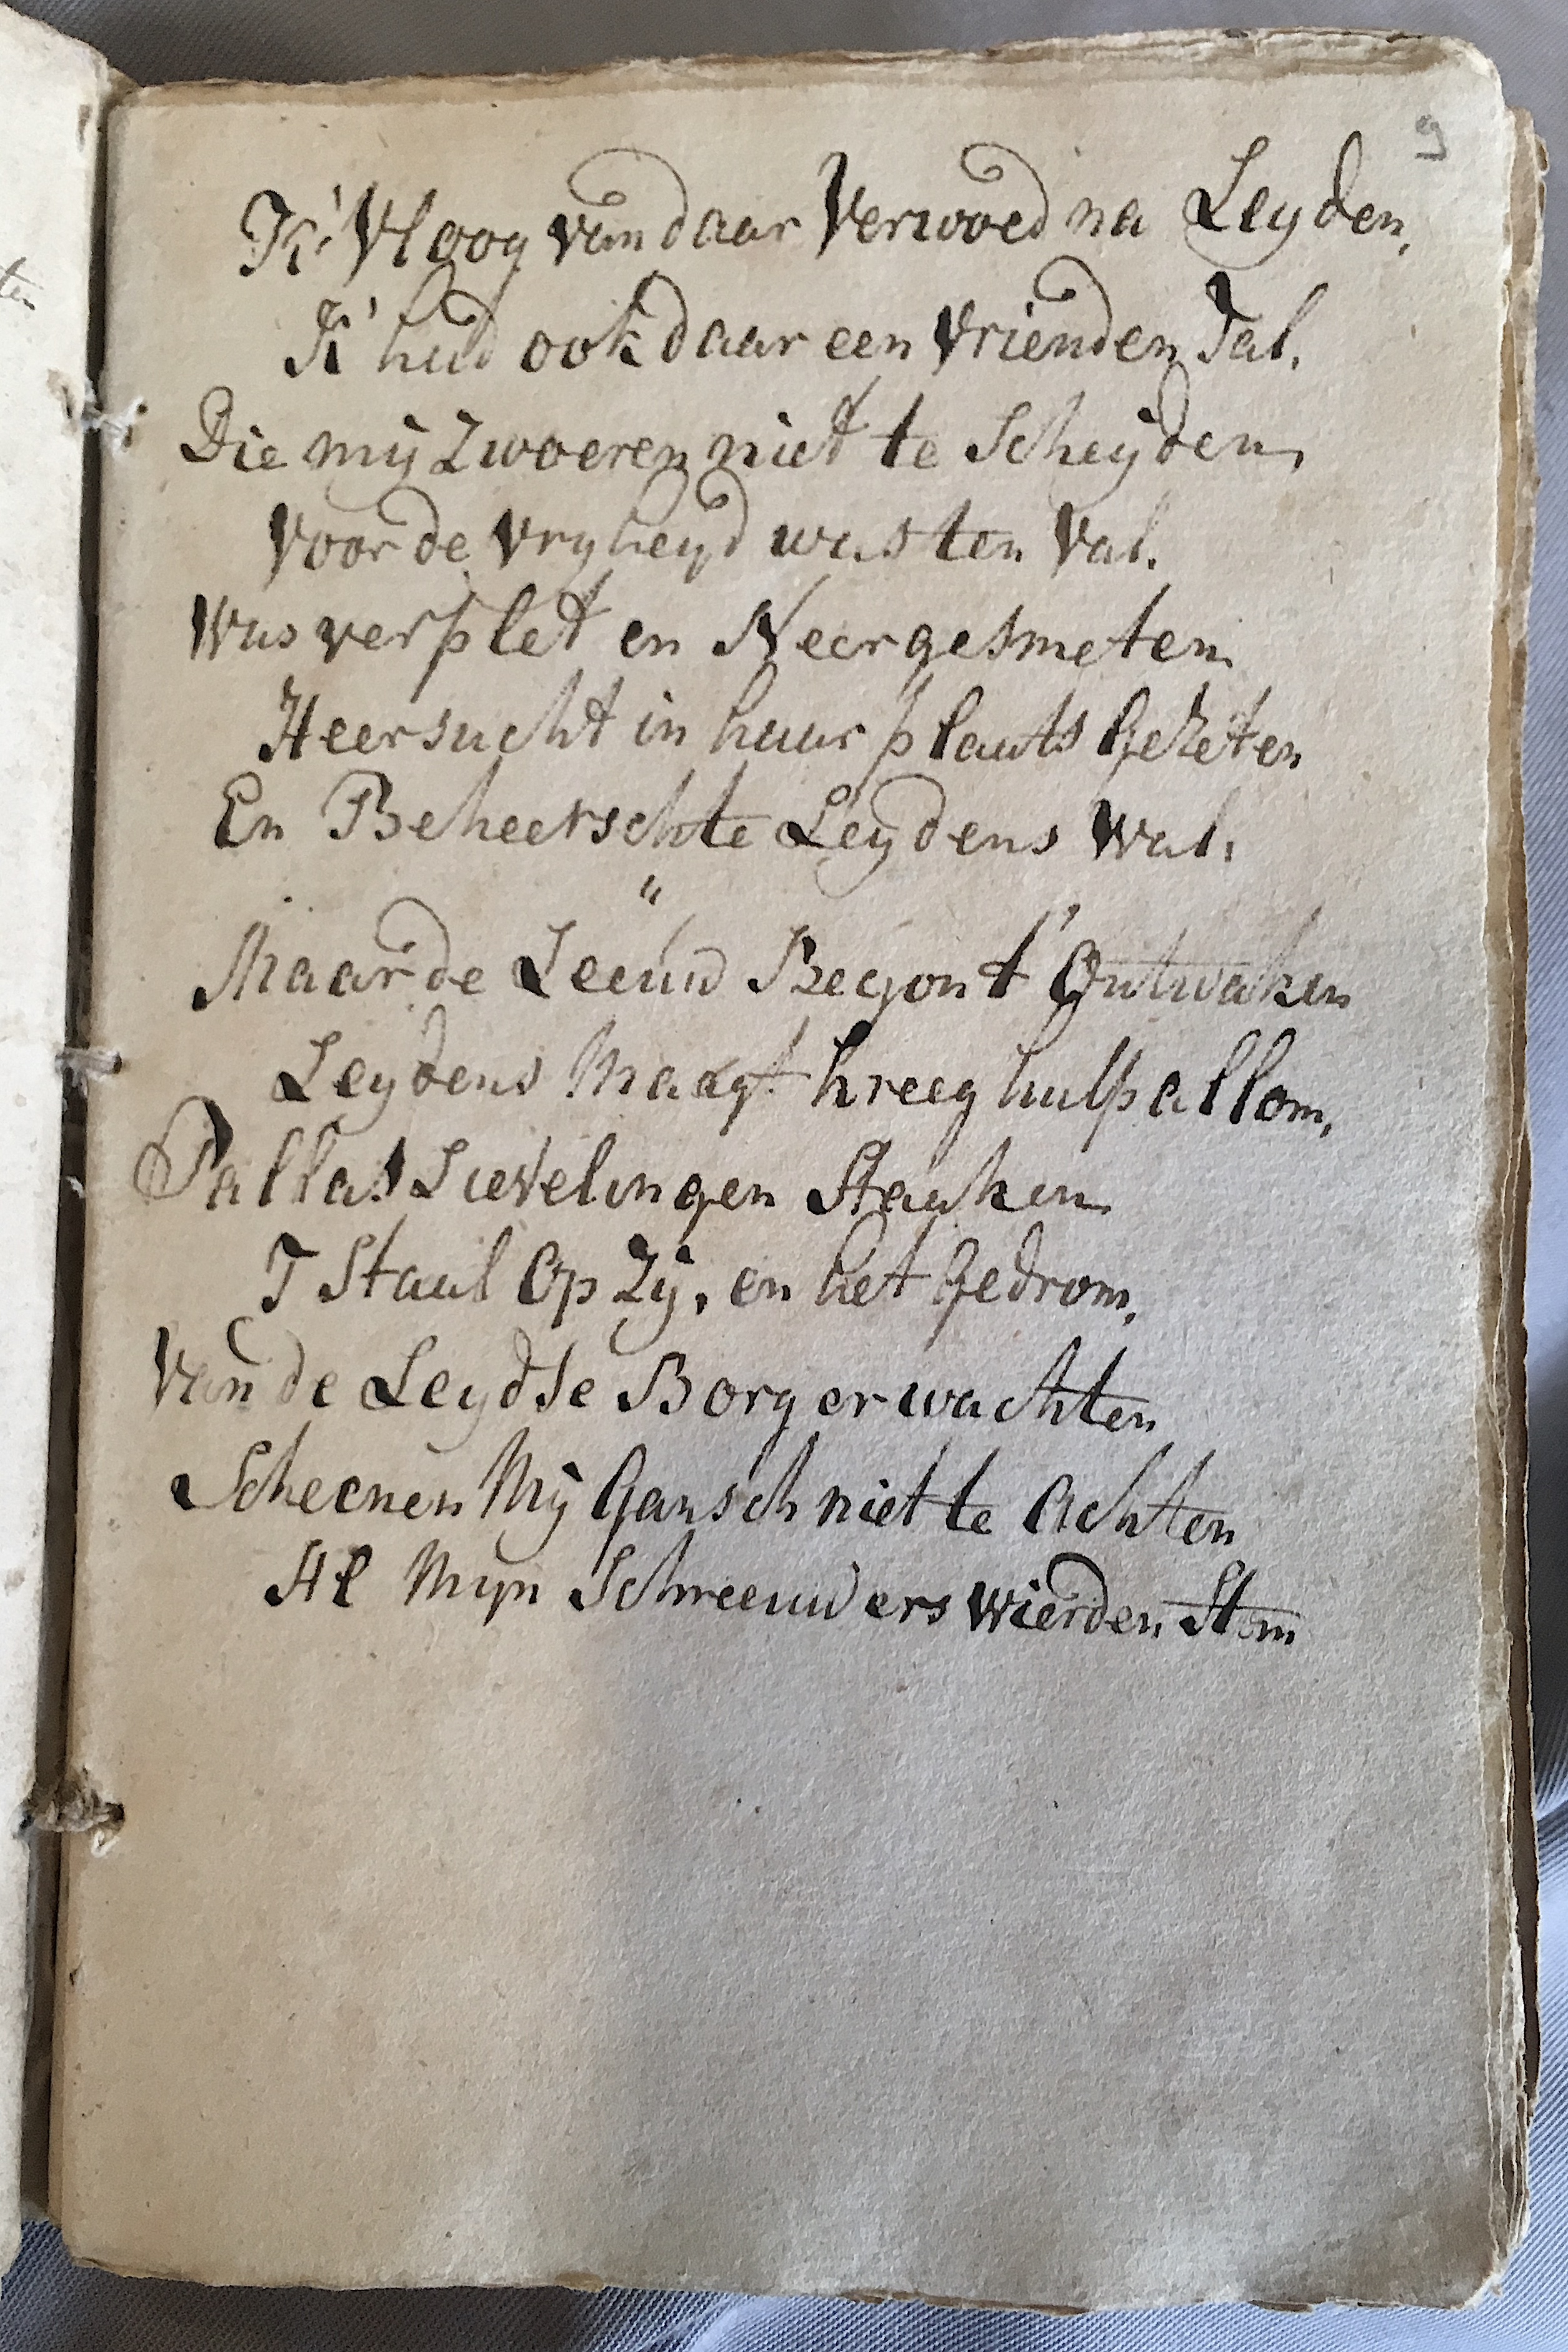 9
K' Vloog van daar Verwoed na Leyden,
K' had ook daar een Vrienden Tal.
Die mij Zwoeren niet te Scheyden,
Voor de Vryheyd was ten Val.
Was verplet en Neergesmeten
Heersucht in haar plaats Gezeten
En Beheerschte Leydens Wal.
"
Maar de Leeuw Begon t' Ontwaken
Leydens Maagt kreeg hulp allom,
Pallas Lievelingen Staaken
T Staal Op Zij, en het Gedrom,
Van de Leydse Borgerwachten
Scheenen Mij Gansch niet te Achten
Al Mijn Schreeuwers wierden Stom
ten